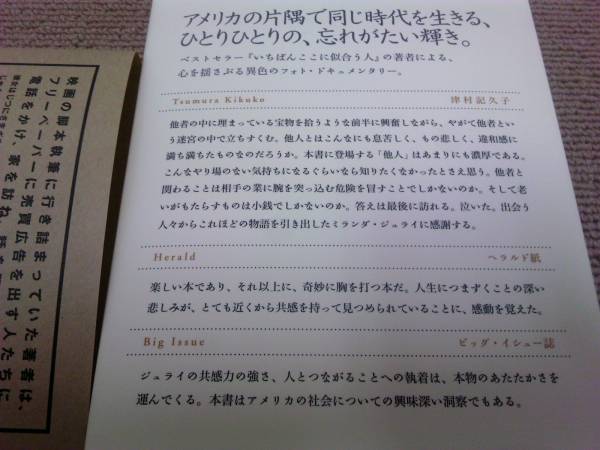 アメリカの片隅で同じ時代を生きる、
ひとりひとりの、忘れがたい輝き。
ベストセラー『いちばんここに似合う人』の著者による、
心を揺さぶる異色のフォト・ドキュメンタリー。
Tsumura Kikuko 津村記久子
他者の中に埋まっている宝物を拾うような前半に興奮しながら、やがて他者とい
う迷宮の中で立ちすくむ。他人とはこんなにも息苦しく、もの悲しく、違和感に
満ち満ちたものなのだろうか。本書に登場する「他人」はあまりにも濃厚である。
こんなやり場のない気持ちになるぐらいなら知りたくなかったとさえ思う。他者と
関わることは相手の業に腕を突っ込む危険を冒すことでしかないのか。そして老
いがもたらすものは小銭でしかないのか。答えは最後に訪れる。泣いた。出会う
人々からこれほどの物語を引き出したミランダ・ジュライに感謝する。
Herald ヘラルド紙
楽しい本であり、それ以上に、奇妙に胸を打つ本だ。人生につまずくことの深い
悲しみが、とても近くから共感を持って見つめられていることに、感動を覚えた。
Big Issue ビッグ・イシュー誌
ジュライの共感力の強さ、人とつながることへの執着は、本物のあたたかさを
運んでくる。本書はアメリカの社会についての興味深い洞察でもある。
映画の脚本執筆に行き詰まっていた著者は、
フリーペーパーに売買広告を出す人たちに
電話をかけ、家を訪ね、